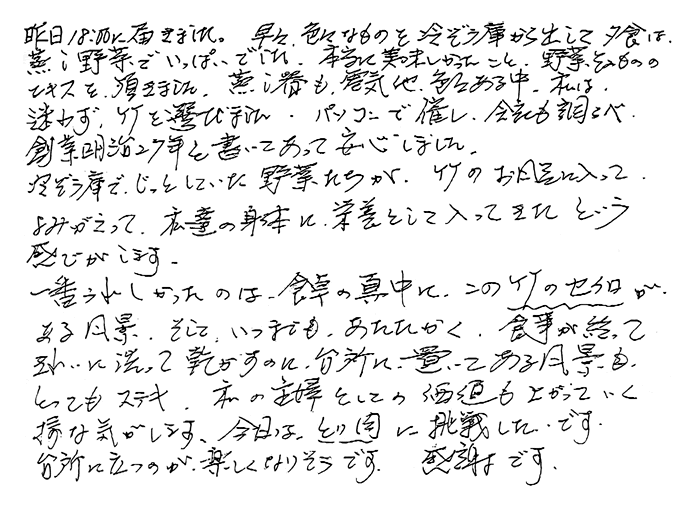 昨日18:00に届きました。早々、色々なものを冷ぞう庫から出して夕食は、
蒸し野菜でいっぱいでした。本当に美味しかったこと、野菜そのものの
エキスを、頂きました。蒸し器も、電気他、色々ある中、私は、
迷わず、竹を選びました。パソコンで催し、会社も調らべ、
創業明治27年と書いてあって安心しました。
冷ぞう庫で、じっとしていた野菜たちが、竹のお風呂に入って、
よみがえって、家族の身体に、栄養として入ってきたという
感じがします。
一番うれしかったのは、食卓の真中に、この竹のセイロが、
ある風景、そして、いつまでも、あたたかく、食事が終って
キレイに洗って乾かすのに、台所に、置いてある風景も、
とってもステキ、私の主婦としての価値も上がっていく
様な気がします、今日は、とり肉に挑戦したいです。
台所に立つのが、楽しくなりそうです。感謝です。